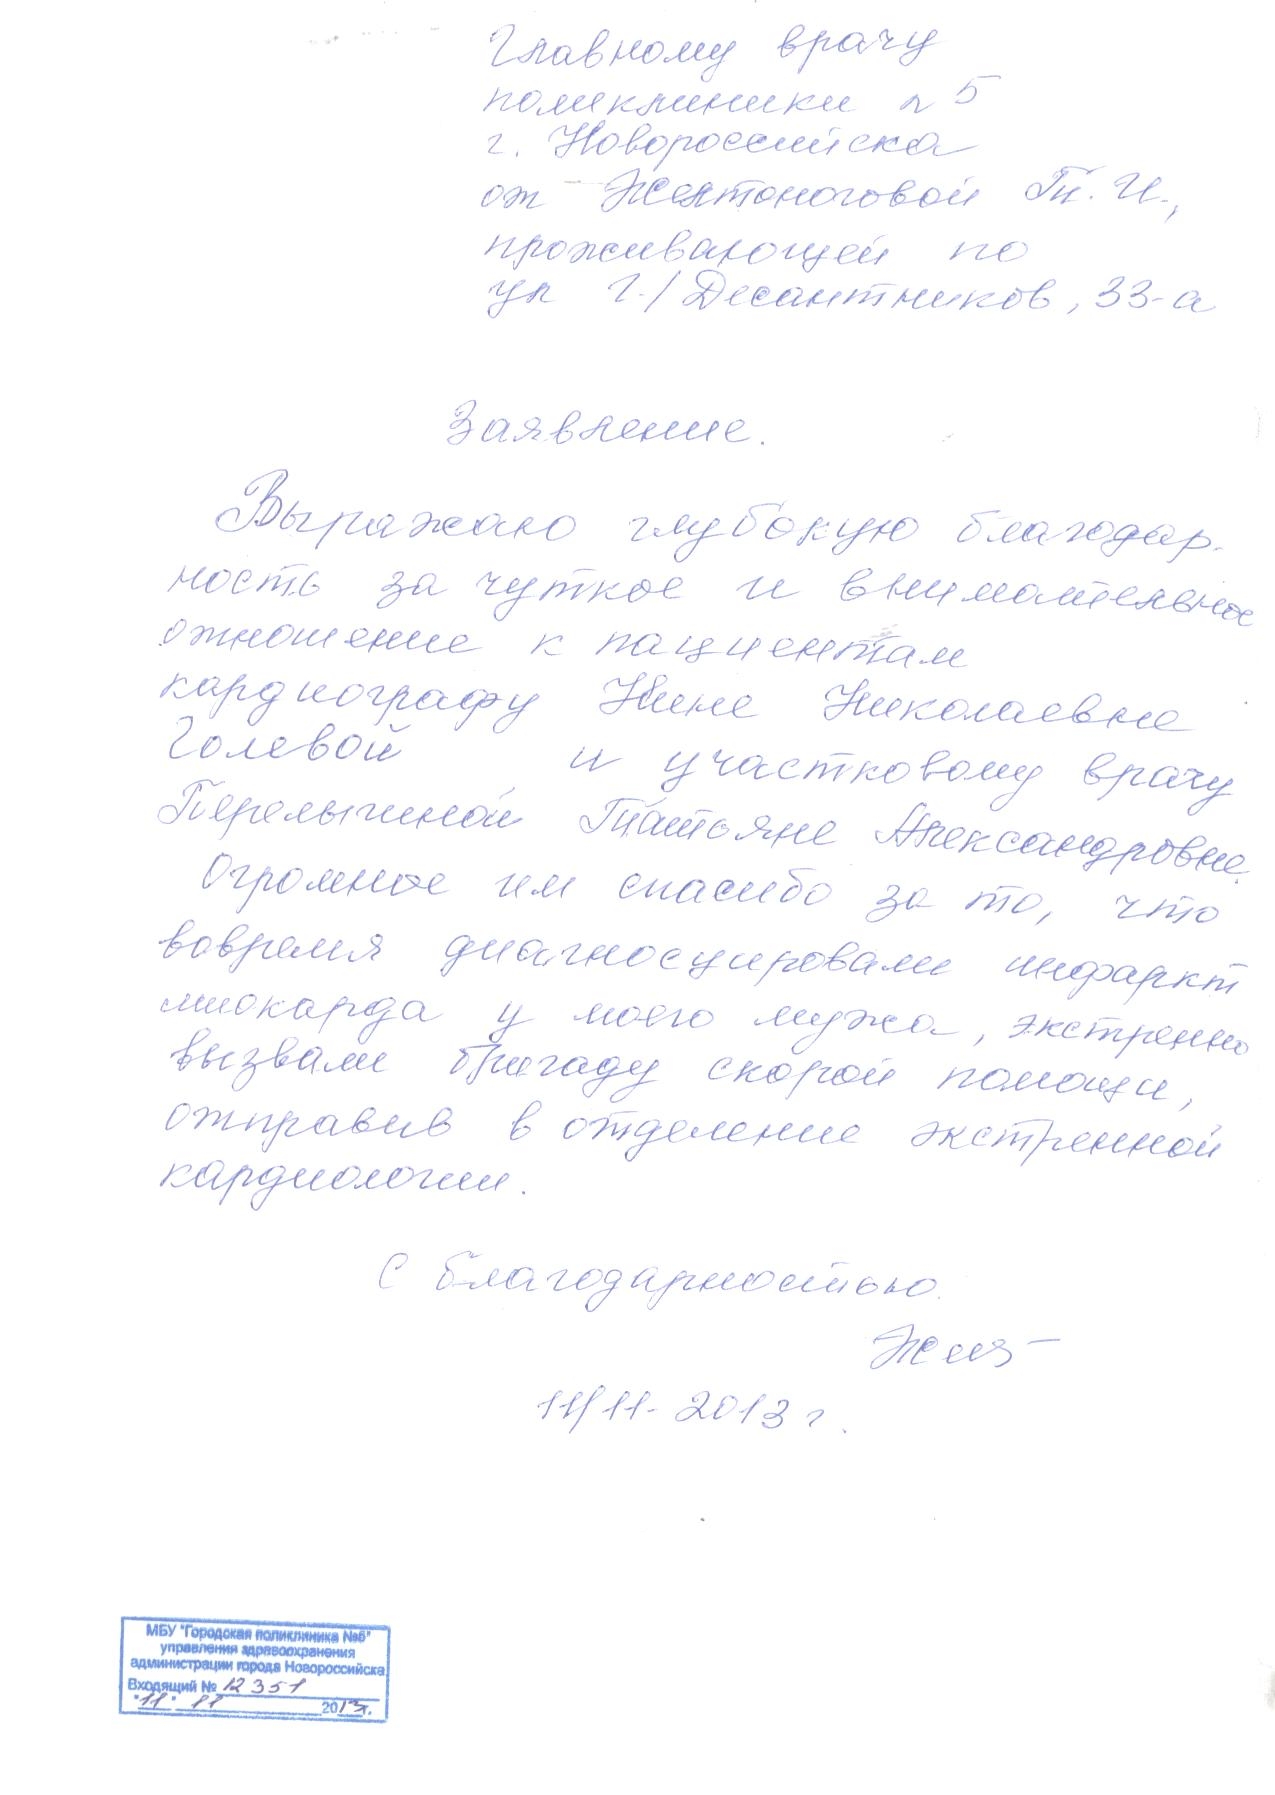 Главному врачу
поликлиники № 5
г. Новороссийска
от Желтоноговой Т. И.,
проживающей по
ул Г./Десантников, 33-а
Заявление.
Выражаю глубокую благодар-
ность за чуткое и внимательное
отношение к пациентам
кардиографу Нине Николаевне
Голевой и участковому врачу
Перелыгиной Татьяне Александровне.
Огромное им спасибо за то, что
вовремя диагносцировали инфаркт
миокарда у моего мужа, экстренно
вызвали бригаду скорой помощи,
отправив в отделение экстренной
кардиологии.
С благодарностью.
11/11- 2013 г.
МБУ "Городская поликлиника №5"
управления здравоохранения
администрации города Новороссийска
Входящий № 12351
"11" 11 2013г.